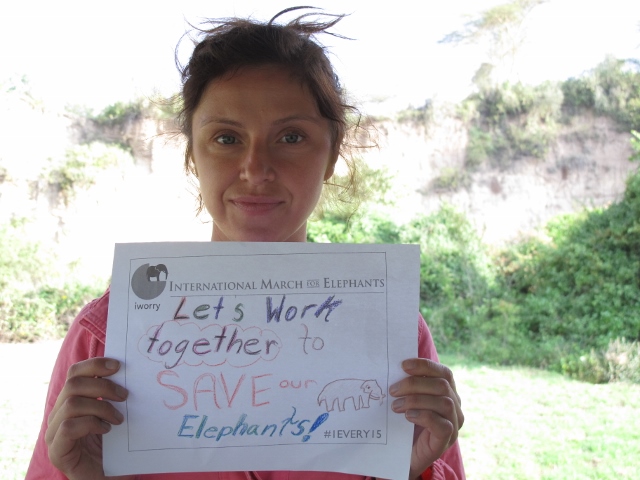 INTERNATIONAL MARCH FOR ELEPHANTS
iworry
Let's Work
together to
SAVE our
Elephants!
#1EVERY15